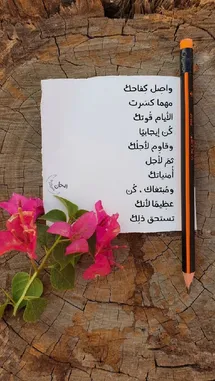 واصل كفاحكْ
مهما كسَرتْ
الأيام قوتكْ
كُن إيجابيًا
وقاوِم لأجلُكْ
ثمّ لأجل
أمنياتكْ
ومُبتغاكْ ، كُن
عظيمًا لأنكْ
تستحق ذلكْ